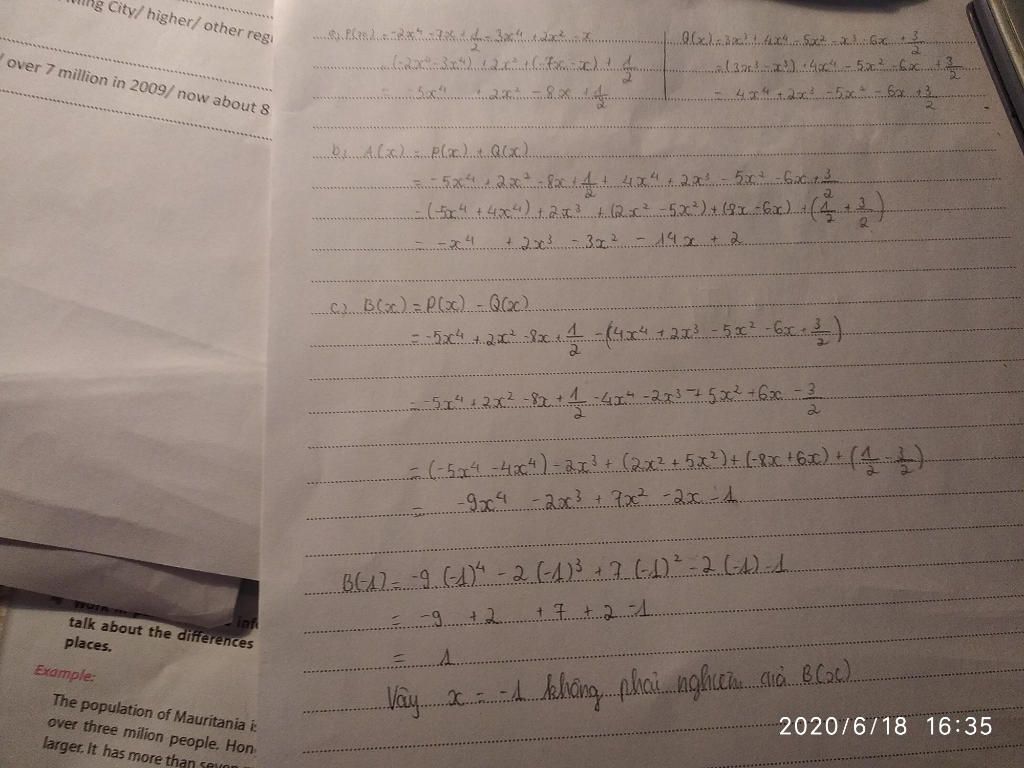 Ming City/ higher/ other regi
over 7 million in 2009/ now about 8
a, P(x) = -2x⁴ - 7x + 1/2 - 3x⁴ + 2x² - x
= (-2x⁴ - 3x⁴) + 2x² + (-7x - x) + 1/2
= -5x⁴ + 2x² - 8x + 1/2
Q(x) = 3x³ + 4x⁴ - 5x² - x³ - 6x + 3/2
= (3x³ - x³) + 4x⁴ - 5x² - 6x + 3/2
= 4x⁴ + 2x³ - 5x² - 6x + 3/2
b, A(x) = P(x) + Q(x)
= -5x⁴ + 2x² - 8x + 1/2 + 4x⁴ + 2x³ - 5x² - 6x + 3/2
= (-5x⁴ + 4x⁴) + 2x³ + (2x² - 5x²) + (-8x - 6x) + (1/2 + 3/2)
= -x⁴ + 2x³ - 3x² - 14x + 2
c, B(x) = P(x) - Q(x)
= -5x⁴ + 2x² - 8x + 1/2 - (4x⁴ + 2x³ - 5x² - 6x + 3/2)
= -5x⁴ + 2x² - 8x + 1/2 - 4x⁴ - 2x³ + 5x² + 6x - 3/2
= (-5x⁴ - 4x⁴) - 2x³ + (2x² + 5x²) + (-8x + 6x) + (1/2 - 3/2)
= -9x⁴ - 2x³ + 7x² - 2x - 1
B(-1) = -9 (-1)⁴ - 2 (-1)³ + 7 (-1)² - 2 (-1) - 1
= -9 + 2 + 7 + 2 - 1
= 1
Vậy x = -1 không phải nghiệm của B(x)
talk about the differences
places.
Example:
The population of Mauritania is
over three milion people. Hon
larger. It has more than seven
2020/6/18 16:35